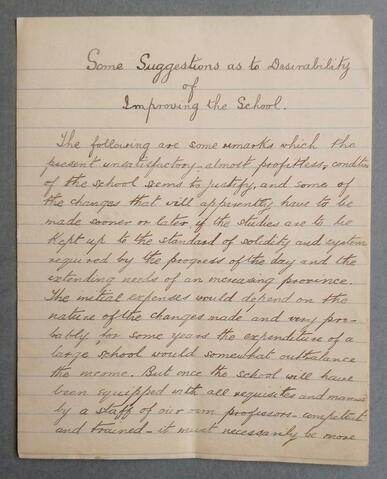 Some Suggestions as to Desirability
of
Improving the School.
The following are some remarks which the
present unsatisfactory - almost profitless, condition
of the school seems to justify, and some of
the changes that will apparently have to be
made sooner or later, if the studies are to be
kept up to the standard of solidity and system
required by the progress of the day and the
extending needs of an increasing province.
The initial expenses would depend on the
nature of the changes made and very pro-
bably for some years the expenditure of a
large school would somewhat outbalance
the income. But once the school will have
been equipped with all requisites and manned
by a staff of our own professors - competent
and trained - it must necessarily be more